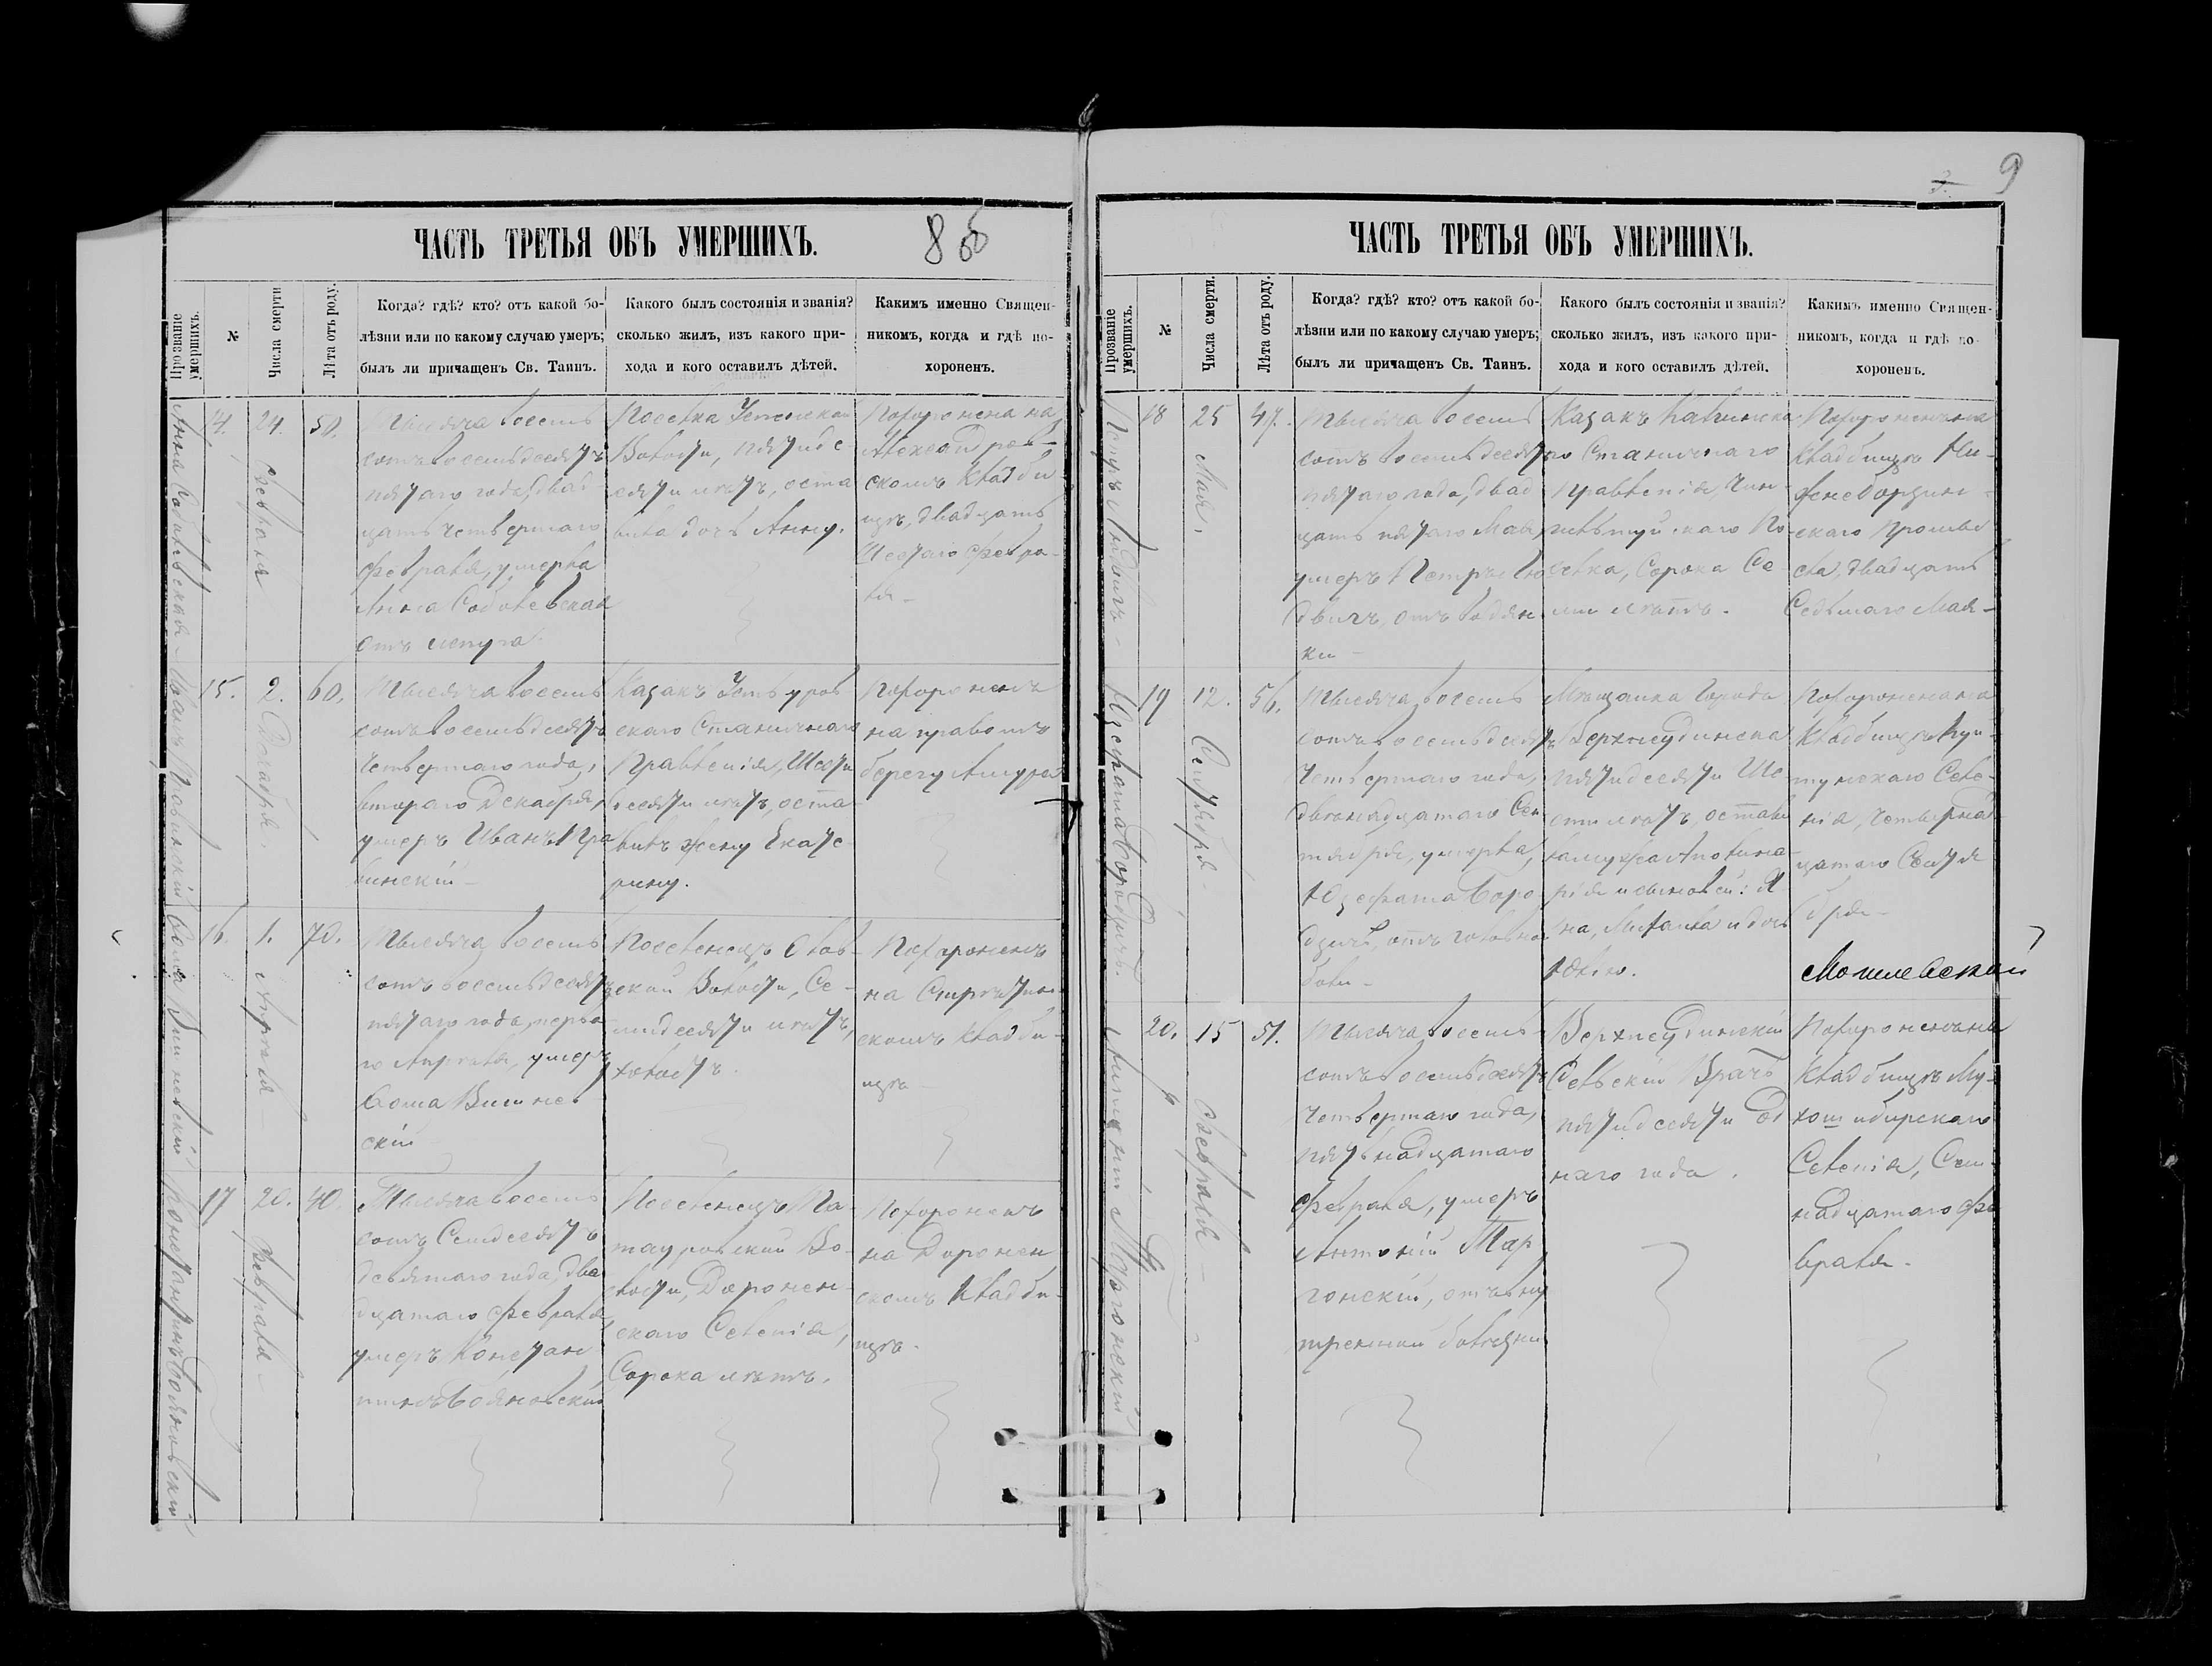 ЧАСТЬ ТРЕТЬЯ ОБЪ УМЕРШИХЪ.
8 об
Прозваніе умершихъ.
№
Числа смерти
Лѣта отъ роду.
Когда? гдѣ? кто? отъ какой бо-
лѣзни или по какому случаю умеръ;
былъ ли причащенъ Св. Таинъ.
Какого былъ состоянія и званія?
сколько жилъ, изъ какого при-
хода и кого оставилъ дѣтей.
Какимъ именно Священ-
никомъ, когда и гдѣ по-
хороненъ.
Анна Соболевская
14.
24.
Февраля
50.
Тысяча восемь
сотъ восемьдесятъ
пятаго года, двад
цать четвертаго
февраля, умерла
Анна Соболевская
отъ испуга.
Волости, пятьде
сяти лѣтъ, оста
вила дочь Анну.
Похоронена на
Александров
скомъ кладби
щѣ, двадцать
Шестаго Февра
ля
15.
2.
Декабря
60.
Тысяча восемь
сотъ восемьдесятъ
четвертаго года,
втораго Декабря,
умеръ Иванъ
Казакъ
скаго Станичнаго
Правленія, Шести
десяти лѣтъ, оста
вилъ жену Екате
рину.
Похороненъ
на правомъ
берегу Амура
16.
1.
Апрѣля
70.
Тысяча восемь
сотъ восемьдесятъ
пятаго года, перва
го Апрѣля, умеръ
Ѳома Вишнев
скій
Поселенецъ
ской Волости, Се-
мидесяти лѣтъ,
холостъ.
Похороненъ
на
скомъ кладби-
щѣ
17
20.
Февраля
40.
Тысяча восемь
сотъ Семдесятъ
девятаго года, два
дцатаго февраля,
умеръ Констан
тинъ Бояновскій
Поселенецъ Та-
тауровской Во-
лости, Доронин-
скаго Селенія,
Сорока лѣтъ.
Похороненъ
на Доронин
скомъ кладби-
щѣ.
Константинъ Бояновскій
9
ЧАСТЬ ТРЕТЬЯ ОБЪ УМЕРШИХЪ.
Прозваніе умершихъ.
№
Числа смерти.
Лѣта отъ роду.
Когда? гдѣ? кто? отъ какой бо-
лѣзни или по какому случаю умеръ;
былъ ли причащенъ Св. Таинъ.
Какого былъ состоянія и званія?
сколько жилъ, изъ какого при-
хода и кого оставилъ дѣтей.
Какимъ именно Священ-
никомъ, когда и гдѣ по-
хороненъ.
Петръ Людвигъ
18
25
Мая
47.
Тысяча восемь
сотъ восемьдесятъ
пятаго года, двад
цать пятаго Мая,
умеръ Петръ Лю
двигъ, отъ водян
ки
Казакъ
го Станичнаго
Правленія,
скаго По
селка, Сорока Се
ми лѣтъ.
Похороненъ на
кладбищѣ
скаго Промы
сла, двадцать
Седьмаго Мая
19
12.
Сентября
56.
Тысяча восемь
сотъ восемьдесятъ
четвертаго года,
двѣнадцатаго Сен
тября, умерла
Юзефата Боро
дичъ, отъ головной
боли
Мѣщанка Города
Верхнеудинска
пятидесяти Ше
сти лѣтъ, остави
ла мужа Аполина
рія и сыновей: Я
на, Михаила и дочь
Похоронена на
кладбищѣ Куй-
тунскаго Селе-
нія, четырна
цатаго Сентя
бря
20.
15
Февраля
51.
Тысяча восемь
сотъ восемьдесятъ
четвертаго года,
пятьнадцатаго
февраля, умеръ
Антоній Мар
гонскій, отъ вну
тренней болѣзни
Верхнеудинскій
Сельскій Врачъ
пятидесяти Од
наго года.
Похороненъ на
кладбищѣ Му-
хошибирскаго
Селенія, Сем-
надцатаго фе
враля.